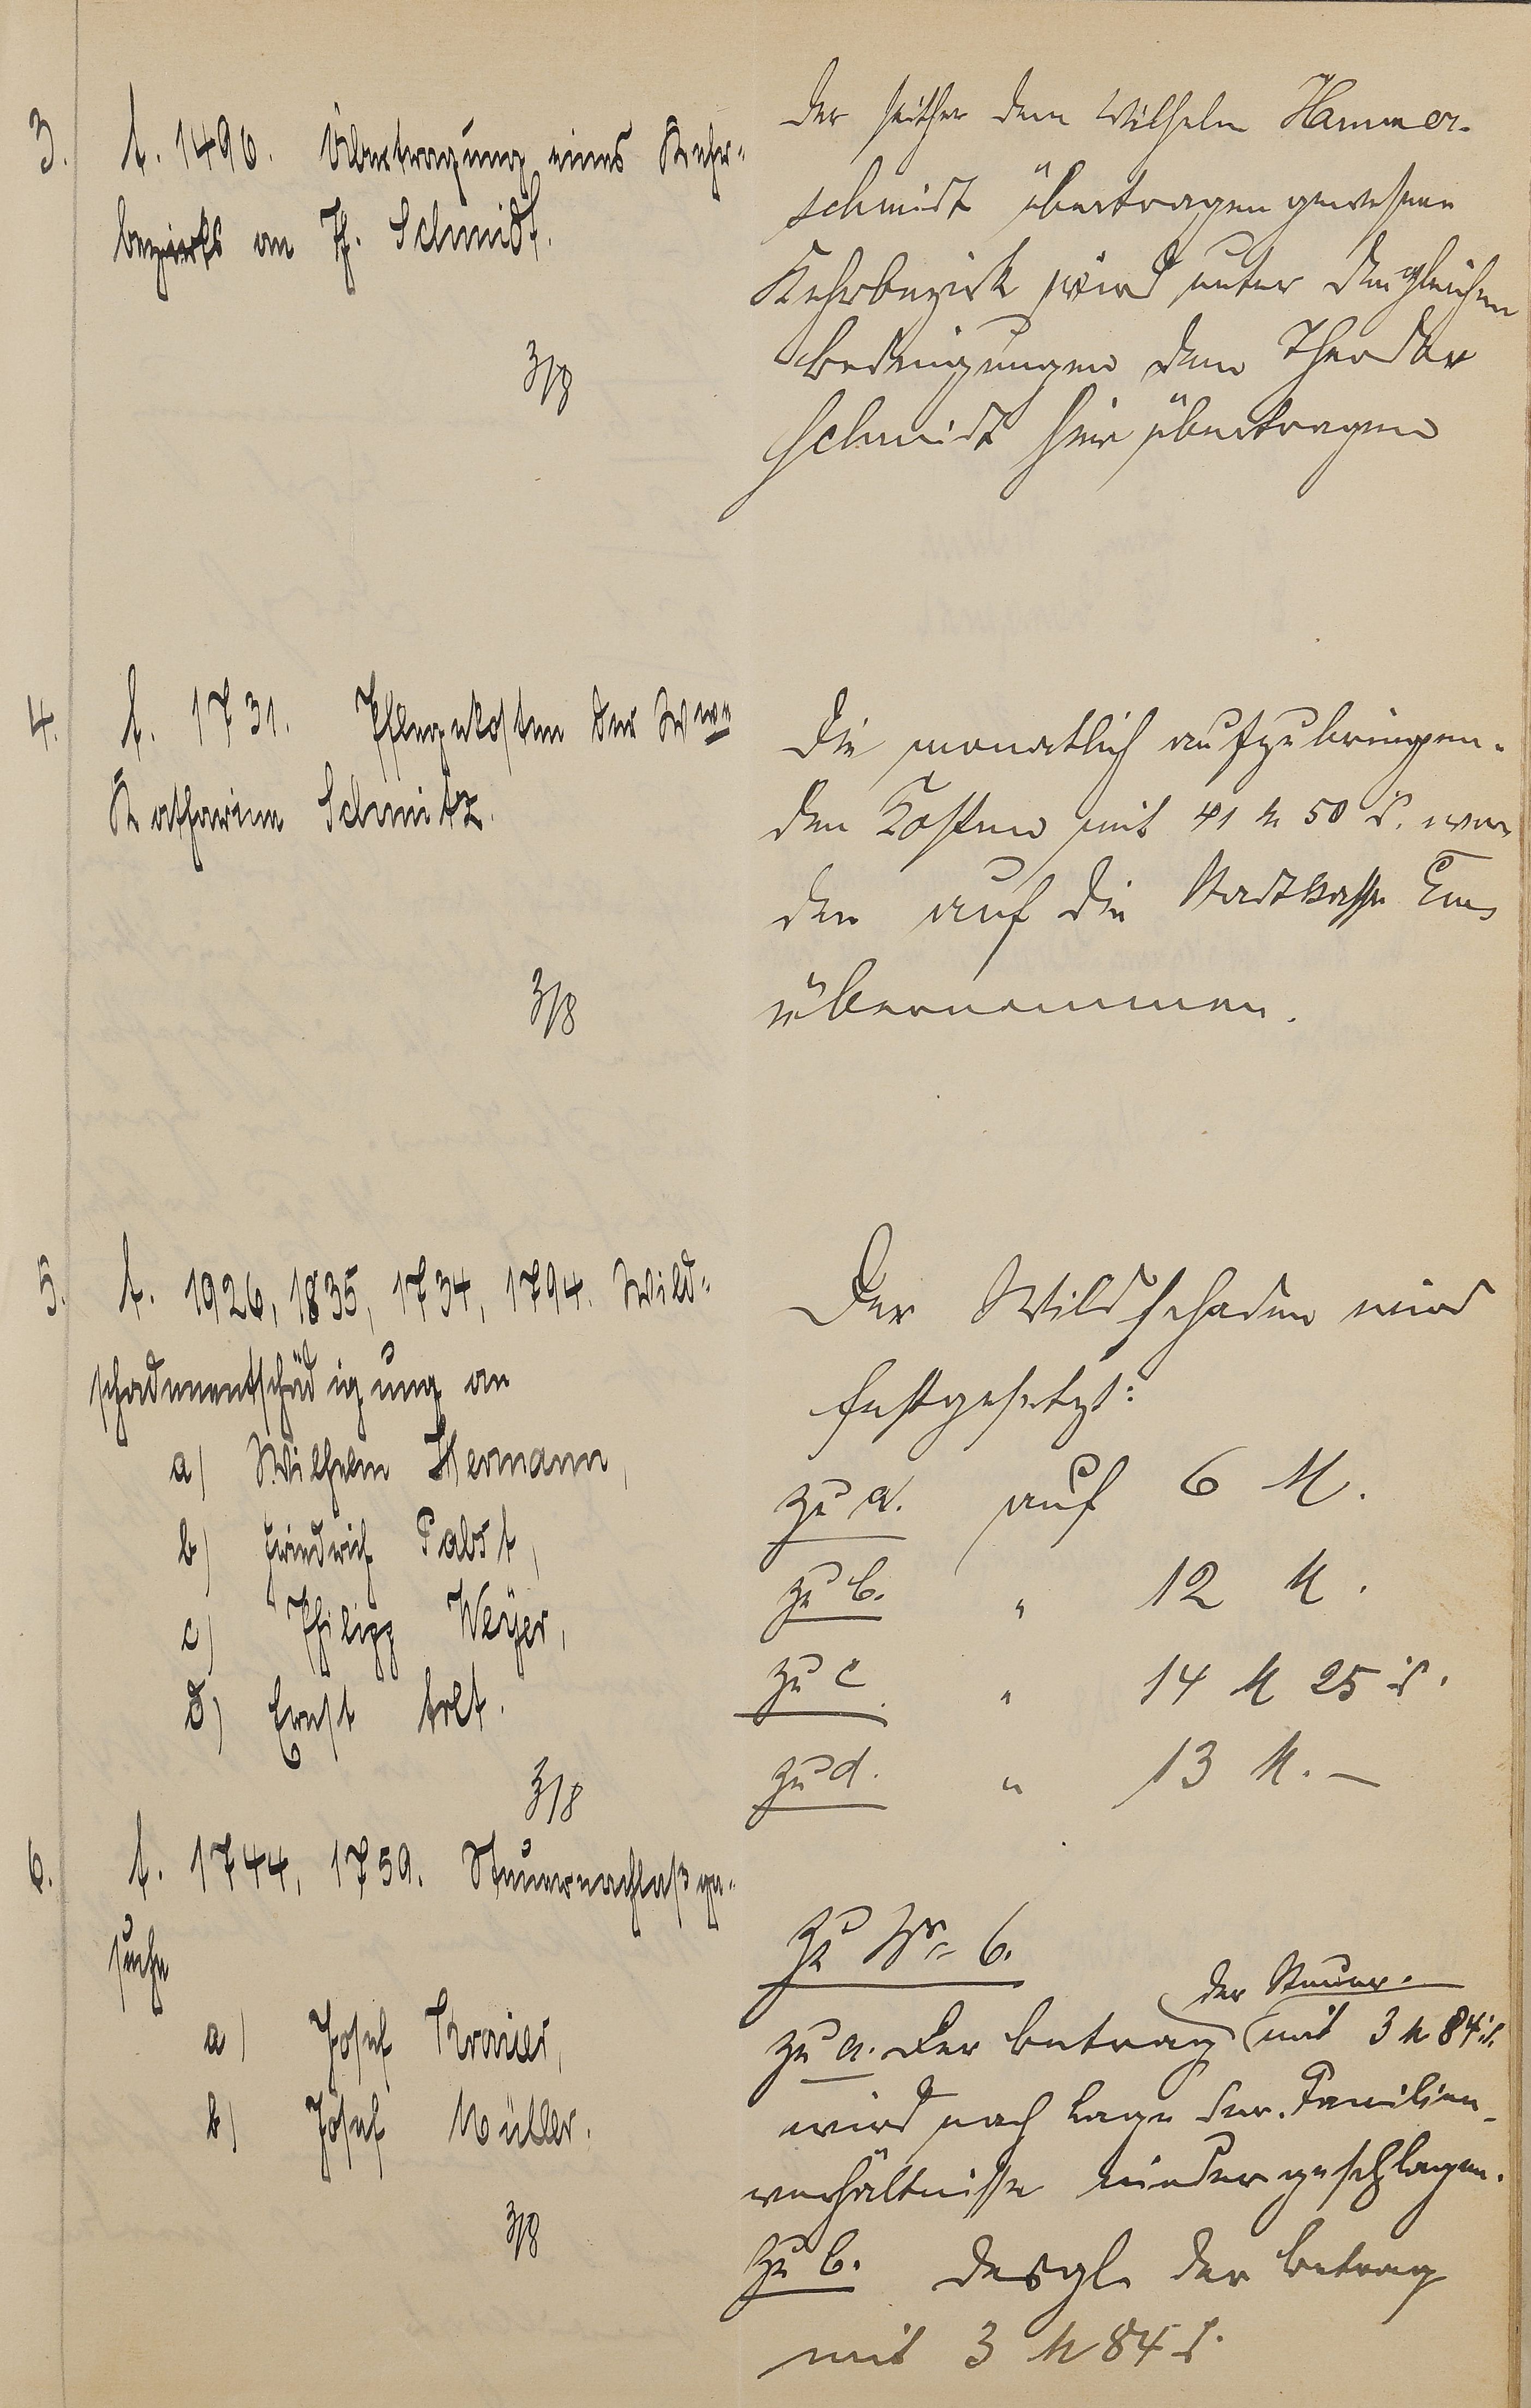 3. A. 1496. Übertragung eines Kehr-
bezirks an Th. Schmidt.
3/8
Der seither dem Wilhelm Hammer-
schmidt übertragen gewesene
Kehrbezirk wird unter den gleichen
Bedingungen dem Theodor
Schmidt hier übertragen
4. A. 1731. Pflegekosten der Wwe
Katharina Schmitz.
3/8
Die monatlich aufzubringen-
den Kosten mit 41 M 50 d. wer
den auf die Stadtkasse Ems
übernommen.
5. A. 1926, 1835, 1734, 1794. Wild-
schadenentschädigung an
a) Wilhelm Hermann,
b) Friedrich Pabst,
c) Philipp Weyer,
d) Ernst Arlt.
3/8
Der Wildschaden wird
festgesetzt:
zu a. auf 6 M.
zu b. " 12 M.
zu c. " 14 M 25 d.
zu d. " 13 M. —
6. A. 1744, 1759. Steuernachlaßge-
suche
a) Josef
b) Josef Müller.
3/8
Zu Nr. 6.
der Steuer.
zu a. Der Betrag mit 3 M 84 d.
wird nach Lage der Familien-
verhältnisse niedergeschlagen.
zu b. desgl. der Betrag
mit 3 M 84 d.